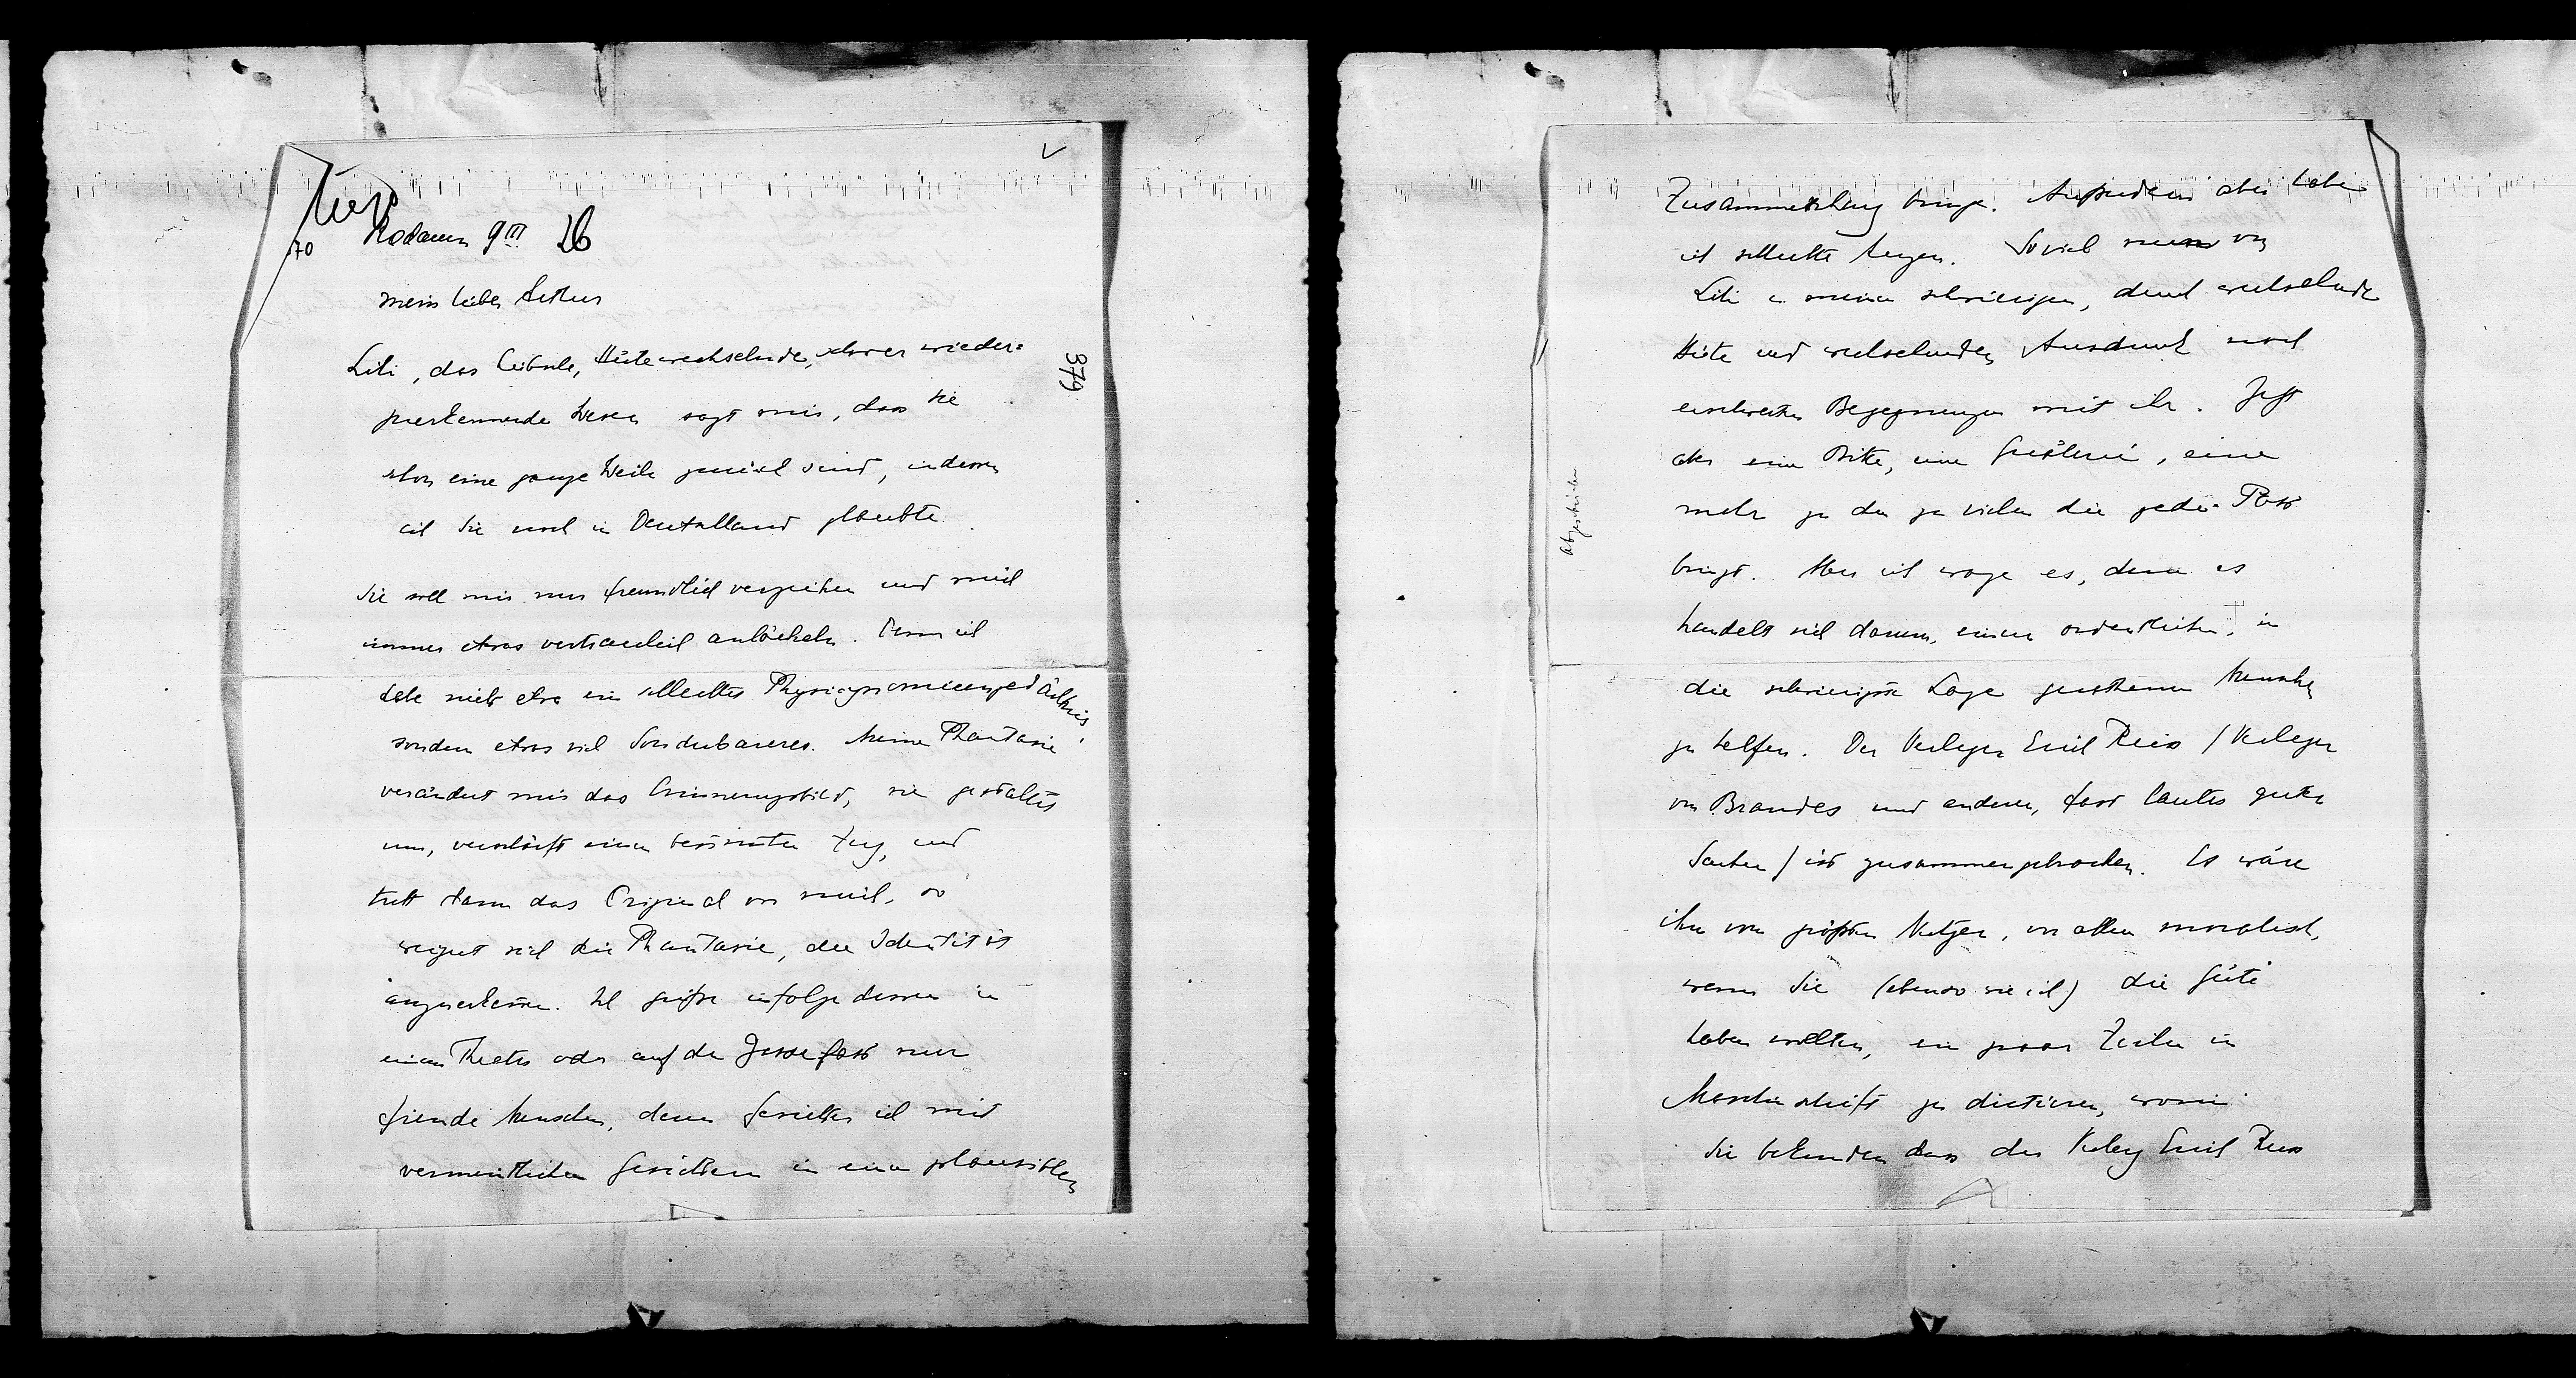 Hugo
70
Rodaun 9 III 26
mein lieber Arthur
379
Lili, das liebende, Hüte wechselnde, schwer wieder=
zuerkennende Wesen sagt mir, dass Sie
schon eine ganze Weile zurück sind, indessen
ich Sie noch in Deutschland glaubte.
Sie soll mir nur freundlich verzeihen und mich
immer etwas vertraulich anlächeln. Denn ich
habe nicht etwa ein schlechtes Physiognomieengedächtnis,
sondern etwas viel Sonderbareres. Meine Phantasie
verändert mir das Erinnerungsbild, sie gestaltet
um, verschärft einen bestimmten Zug, und
tritt dann das Original vor mich, so
weigert sich die Phantasie, die Identität
anzuerkennen. Ich grüße infolge dessen in
einem Theater oder auf der Gasse fast nur
fremde Menschen, deren Gesichter ich mit
vermeintlichen Gesichtern in einen plausiblen
Zusammenhang bringe. Außerdem aber habe
ich schlechte Augen. Soviel nun von
Lili u meinen schwierigen, durch wechselnde
Hüte und wechselnden Ausdruck noch
erschwerten Begegnungen mit ihr. Jetzt
aber eine Bitte, eine Quälerei, eine
mehr zu den zu vielen die jede Post
bringt. Aber ich wage es, denn es
handelt sich darum, einen ordentlichen, in
die schwierigste Lage gerathenen Menschen
zu helfen. Der Verleger Erich Reiss / Verleger
von Brandes und anderen, fast lauter guten
Sachen / ist zusammengebrochen. Es wäre
ihm vom größten Nutzen, vor allem moralisch,
wenn Sie (ebenso wie ich) die Güte
haben wollten, ein paar Zeilen in
Maschinschrift zu dictieren, worin
Sie bekunden dass der Verleg Erich Reiss
Abgeschrieben